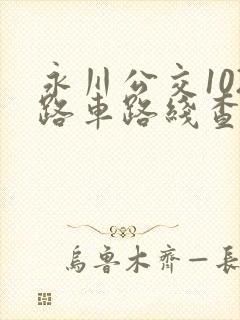 永川公交102
路車路綫查
烏魯木齊—長